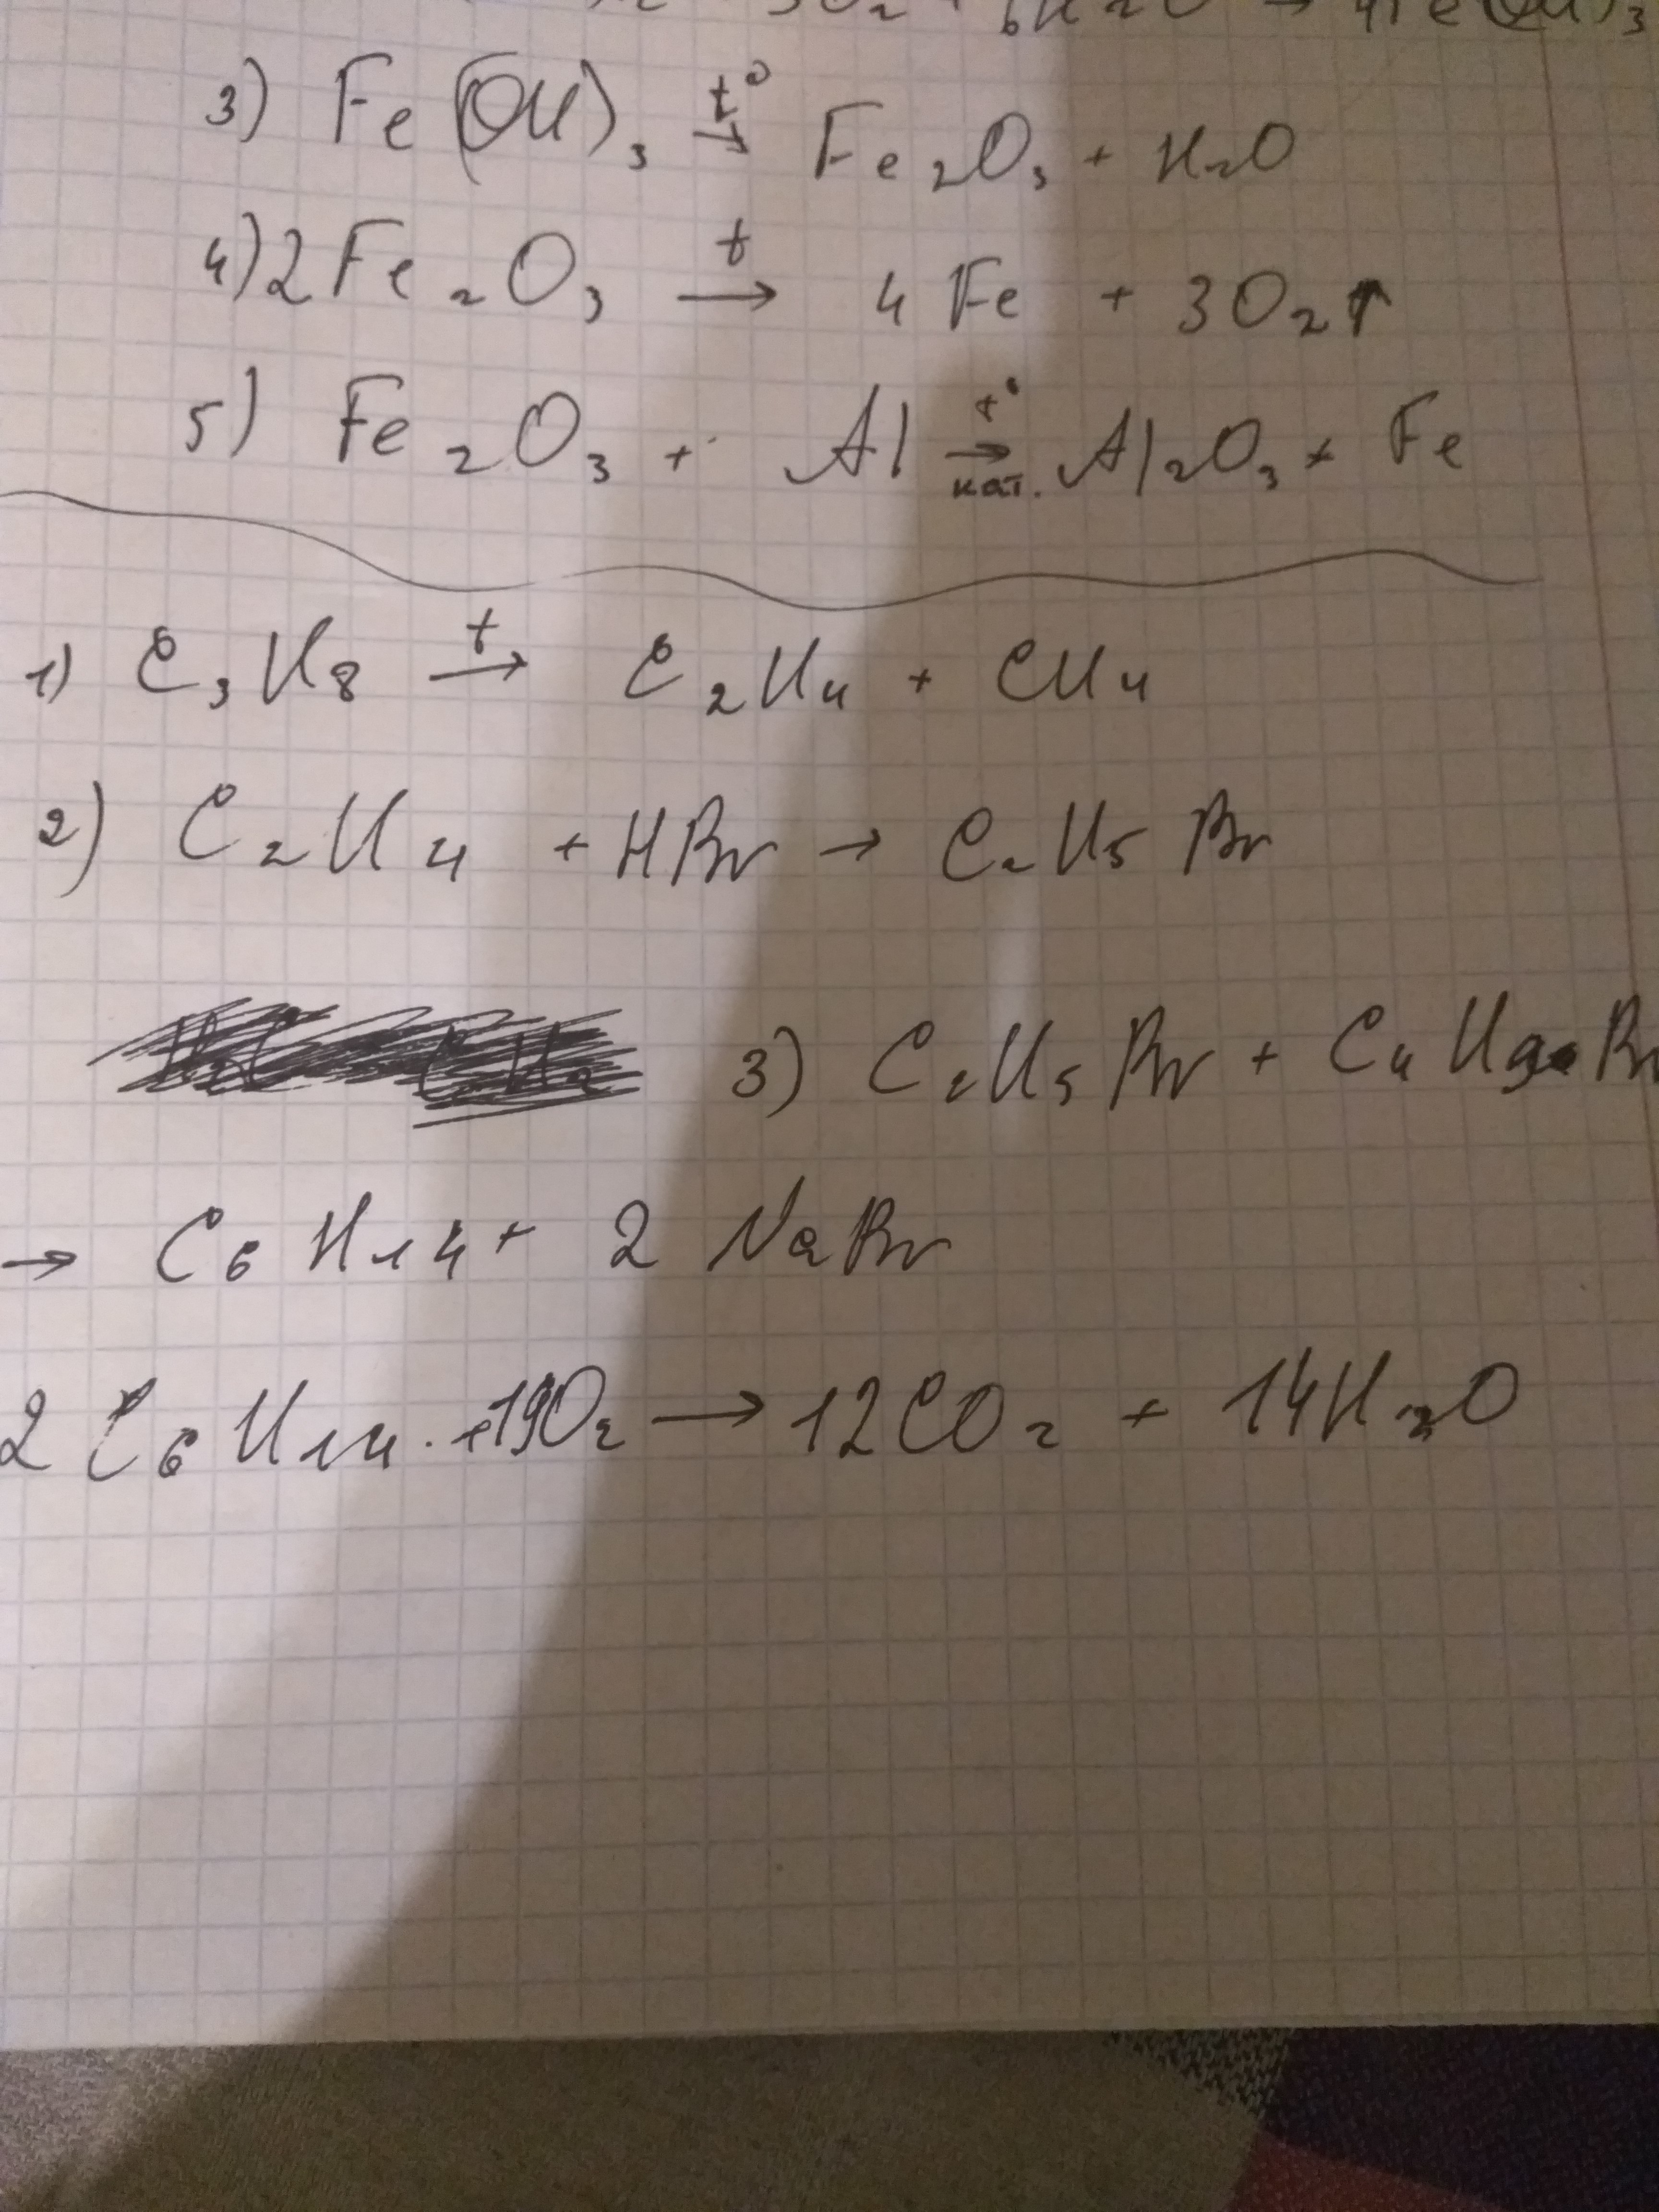 3O₂ + 6H₂O → 4Fe(OH)₃
3) Fe(OH)₃ t°→ Fe₂O₃ + H₂O
4) 2Fe₂O₃ t→ 4Fe + 3O₂↑
5) Fe₂O₃ + Al t°→ кат. Al₂O₃ + Fe
1) C₃H₈ t→ C₂H₄ + CH₄
2) C₂H₄ + HBr → C₂H₅Br
3) C₂H₅Br + C₄H₉Br
→ C₆H₁₄ + 2NaBr
2C₆H₁₄ + 19O₂ → 12CO₂ + 14H₂O